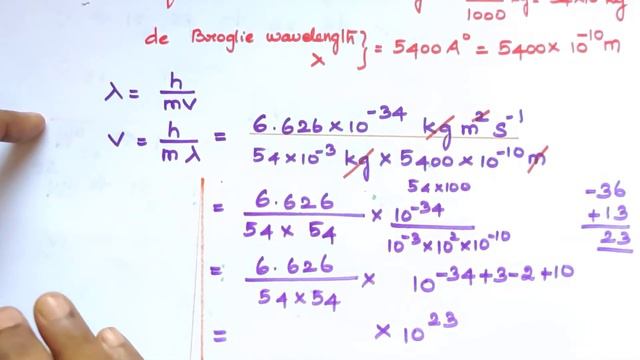 1000 kg
de Broglie wavelength λ } = 5400 A° = 5400 × 10⁻¹⁰ m
λ = h / mv
v = h / mλ = 6.626 × 10⁻³⁴ kg m² s⁻¹ / 54 × 10⁻³ kg × 5400 × 10⁻¹⁰ m
54 × 100
= 6.626 / 54 × 54 × 10⁻³⁴ / 10⁻³ × 10² × 10⁻¹⁰
-36
+13
23
= 6.626 / 54 × 54 × 10⁻³⁴⁺³⁻²⁺¹⁰
= × 10²³